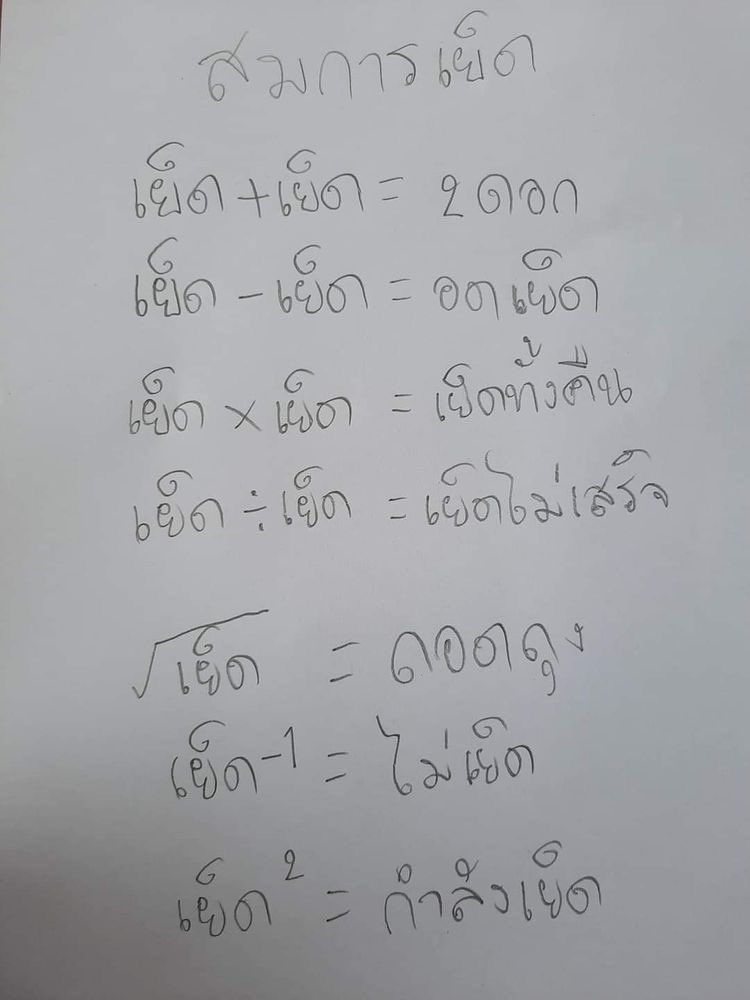 สมการเย็ด
เย็ด + เย็ด = 2 ดอก
เย็ด - เย็ด = อดเย็ด
เย็ด × เย็ด = เย็ดทั้งคืน
เย็ด ÷ เย็ด = เย็ดไม่เสร็จ
√เย็ด = ถอดถุง
เย็ด⁻¹ = ไม่เย็ด
เย็ด² = กำลังเย็ด